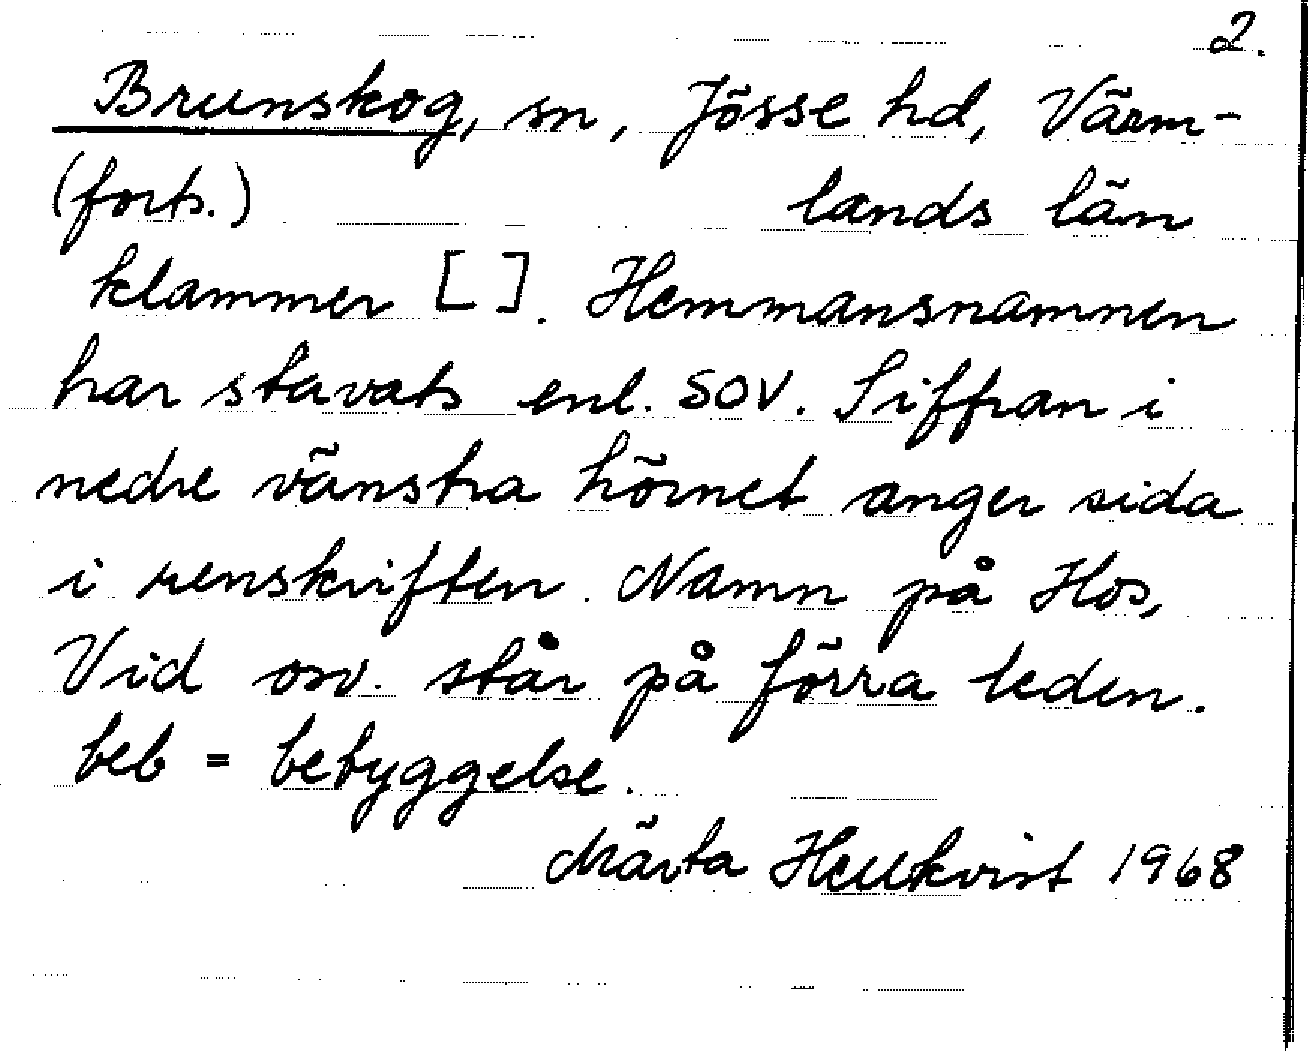 2.
Brunskog, sn, Jösse hd, Värm-
(forts.) lands län
klammer [ ]. Hemmansnamnen
har stavats enl. SOV. Siffran i
nedre vänstra hörnet anger sida
i renskriften. Namn på Hos,
Vid osv. står på förra leden.
beb = bebyggelse.
Märta 1968